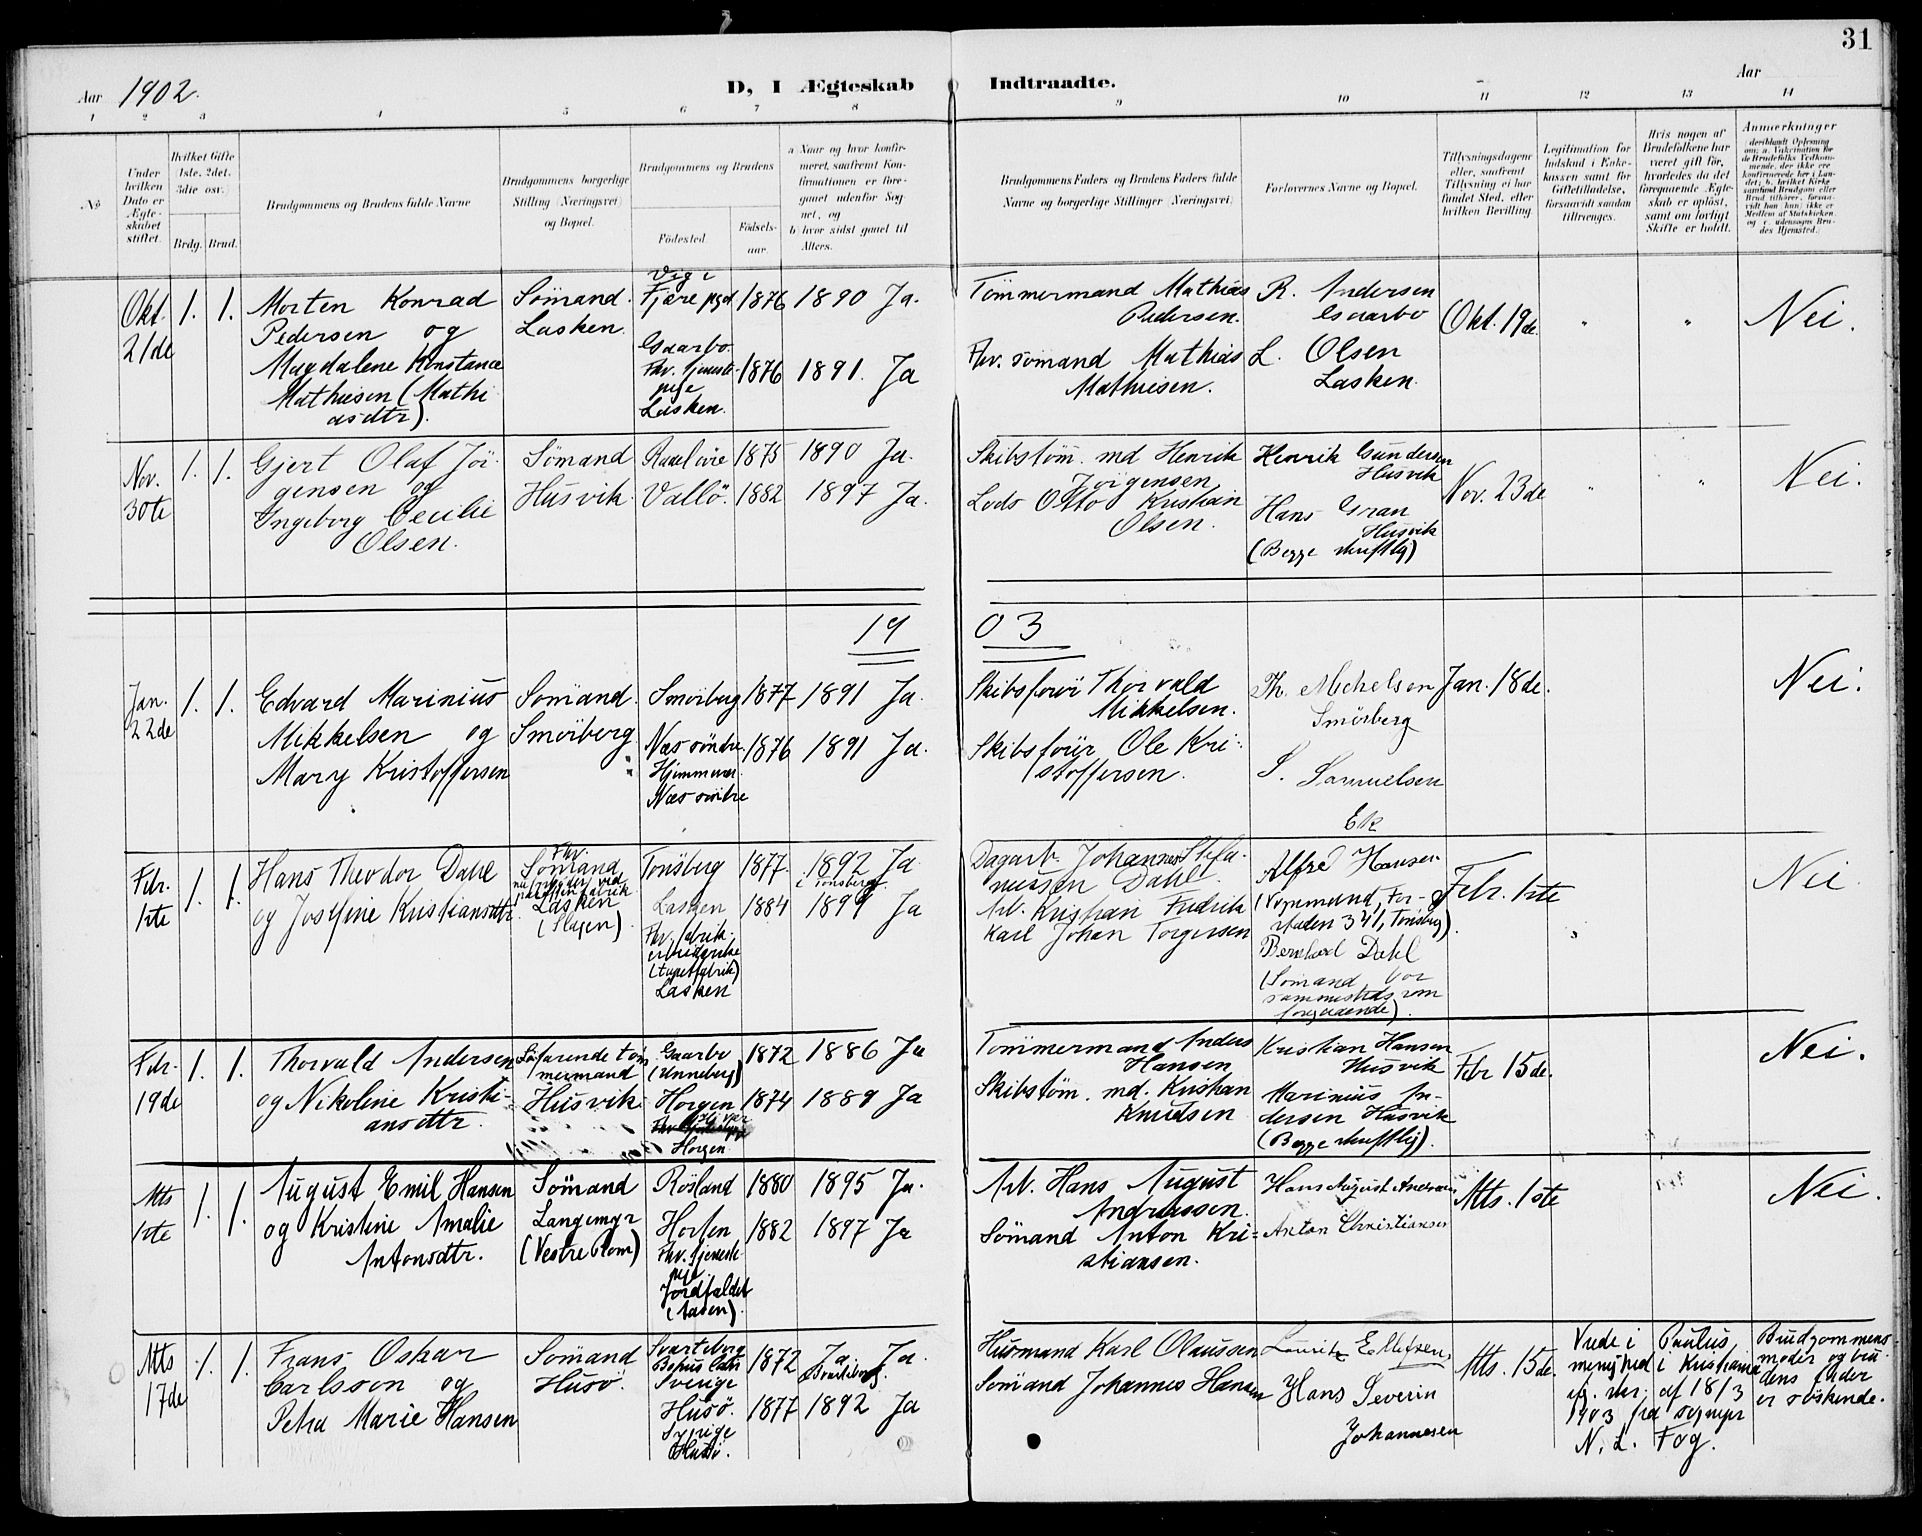 31
Aar 1902.
D, I Ægteskab Indtraadte.
Aar
1 2 3 4 5 6 7 8 9 10 11 12 13 14
No
Under hvilken Dato er Ægteskabet stiftet.
Hvilket Gifte 1ste, 2det, 3die osv.)
Brdg. Brud.
Brudgommens og Brudens fulde Navne
Brudgommens borgerlige Stilling (Næringsvei) og Bopæl.
Brudgommens og Brudens
Fødested.
Fødselsaar.
a Naar og hvor konfirmeret, saafremt Konfirmationen er foregaaet udenfor Sognet, og
b hvor sidst gaaet til Alters.
Brudgommens Faders og Brudens Faders fulde Navne og borgerlige Stillinger (Næringsvei)
Forlovernes Navne og Bopæl.
Tillysningsdagene eller, saafremt Tillysning ei har fundet Sted, efter hvilken Bevilling.
Legitimation for Indskud i Enkekassen samt for Giftetilladelse, forsaavidt saadan tiltrænges.
Hvis nogen af Brudefolkene har været gift før, hvorledes da det foregaaende Ægteskab er opløst, samt om lovligt Skifte er holdt.
Anmærkninger
Okt. 21de
1. 1.
Morten Konrad
Pedersen og
Magdalene Konstance
Mathisen (Mathi
asdtr).
Sömand.
Lasken.
Vig i
Fjære pgd.
Gaarbo.
Fhv. tjeneste-
pige
Lasken.
1876
1876
1890 Ja.
1891. Ja
Tömmermand Mathias
Pedersen.
Fhv. sömand Mathias
Mathisen.
R. Andersen
Gaarbo
L. Olsen
Lasken.
Okt. 19de.
" "
Nei.
Nov. 30te
1. 1.
Gjert Olaf Jör
gensen og
Ingeborg Cecilie
Olsen.
Sömand
Husvik.
Vallö.
1875
1882
1890 Ja.
1897 Ja.
Skibstöm. md Henrik
Jörgensen
Lods Otto Kristian
Olsen.
Henrik Gundersen
Husvik
Hans Gran
Husvik
(Begge skriftlig)
Nov. 23de
" "
Nei.
19 03
Jan. 22de
1. 1.
Edvard Marinius
Mikkelsen og
Mary Kristoffersen
Sömand.
Smörberg
Smörberg
Næs söndre.
Hjemmevær.
Næs söndre
1877
1876
1891 Ja.
1891 Ja.
Skibsförer Thorvald
Mikkelsen.
Skibsförer Ole Kri-
stoffersen.
Th. Mickelsen
Smörberg
S. Samuelsen
Ek
Jan. 18de.
Nei.
Febr. 1ste
1. 1.
Hans Theodor Dahl
og Josefine Kristiansdtr.
Fhv.
Sömand
Lasken
(Slagen)
Tönsberg
Lasken
Fhv. fabrik-
arbeiderske
(tapetfabrik)
Lasken
1877.
1884
1892 Ja
i Tönsberg
1899 Ja
Dagarb. Johannes Stefa-
nussen Dahl.
Arb. Kristian Fredrik
Karl Johan Torgersen
Alfred Hansen
(Vognmand, For-
staden 341, Tönsberg).
Bernhard Dahl
(Sömand, bor
sammesteds som
foregaaende).
Febr. 1ste
Nei
Febr. 19de
1. 1.
Thorvald Andersen
og Nikoline Kristi-
ansdtr.
Söfarende töm
mermand
Husvik
Gaarbo
(Unneberg)
Horgen
Horgen
1872
1874
1886 Ja
1889 Ja
Tömmermand Anders
Hansen
Skibstöm. md. Kristian
Knutsen
Kristian Hansen
Husvik
Marinius An-
dersen Husvik
(Begge skriftlig).
Febr 15de.
Nei.
Mts 1ste
1. 1.
August Emil Hansen
og Kristine Amalie
Antonsdtr.
Sömand
Langemyr
(Vestre Rom)
Rösland
Horten
Fhv. tjeneste-
pige
Jordfaldet
(Aasen).
1880
1882
1895 Ja.
1897 Ja
Arb. Hans August
Andreassen.
Sömand Anton Kri-
stiansen.
Hans August Andreasen
Anton Christiansen
Mts. 1ste
Nei.
Mts 17de
1. 1.
Frans Oskar
Carlsson og
Petra Marie Hansen
Sömand
Husö.
Svarteborg
Bohus Län
Sverige
Husö.
Husö.
1872
1877
Ja Ja.
i Svarteborg.
1892 Ja
Husmand Karl Olaussen
Sömand Johannes Hansen
Lauritz Ellefsen
Hans Severin
Johannesen
Mts. 15de.
Viede i Paulus
menighed i Kristiania
af 18/3
1903 fra sognepr
N. L. Fog.
Brudgommens
moder og bru-
dens fader
er söskende.